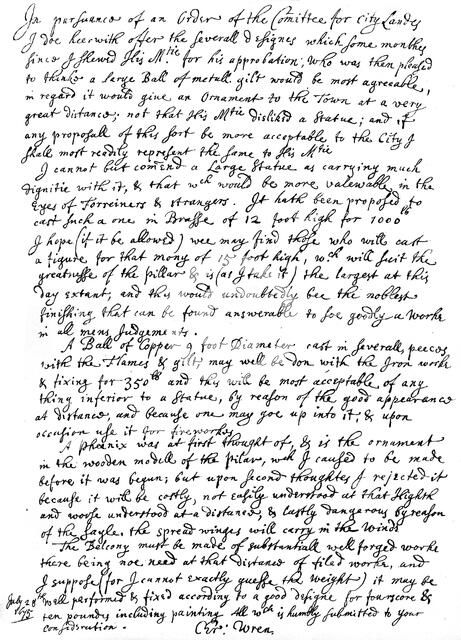 In pursuance of an Order of the Comittee for City Landes
I doe heerwith offer the severall designes which some monthes
since I shewed His M.tie for his approbation, who was then pleased
to thinke a large Ball of metall gilt would be most agreeable,
in regard it would give an Ornament to the Town at a very
great distance; not that His Mtie disliked a Statue; and if
any proposall of this sort be more acceptable to the City I
shall most readily represent the same to His Mtie
I cannot but comend a Large Statue as carrying much
dignitie with it, & that wch would be more valewable in the
Eyes of Forreiners & strangers. It hath been proposed to
cast such a one in Brasse of 12 foot high for 1000lb
I hope (if it be allowed) wee may find those who will cast
a figure for that mony of 15 foot high, wch will suit the
greatnesse of the pillar & is (as I take it) the largest at this
day extant; and this would undoubtedly bee the noblest
finishing that can be found answerable to soe goodly a worke
in all mens Judgements.
A Ball of Copper 9 foot Diameter cast in severall peeces
with the Flames & gilt, may well be don with the Iron worke
& fixing for 350lb and this will be most acceptable of any
thing inferior to a Statue, by reason of the good appearance
at distance, and because one may goe up into it; & upon
occasion use it for fireworkes
A Phœnix was at first thought of, & is the ornament
in the wooden modell of the pilar, wch I caused to be made
before it was begun; but upon second thoughtes I rejected it
because it will be costly, not easily understood at that Highth
and worse understood at a distance; & lastly dangerous by reason
of the sayle, the spread winges will carry in the winde
The Belcony must be made of substantiall well forged worke
there being noe need at that distance of filed worke, and
I suppose (for I cannot exactly guesse the weight) it may be
well performed & fixed according to a good designe for fourscore &
July 28th
1675
ten poundes including painting. All wch is humbly submitted to your
consideration.
Chr: Wren.